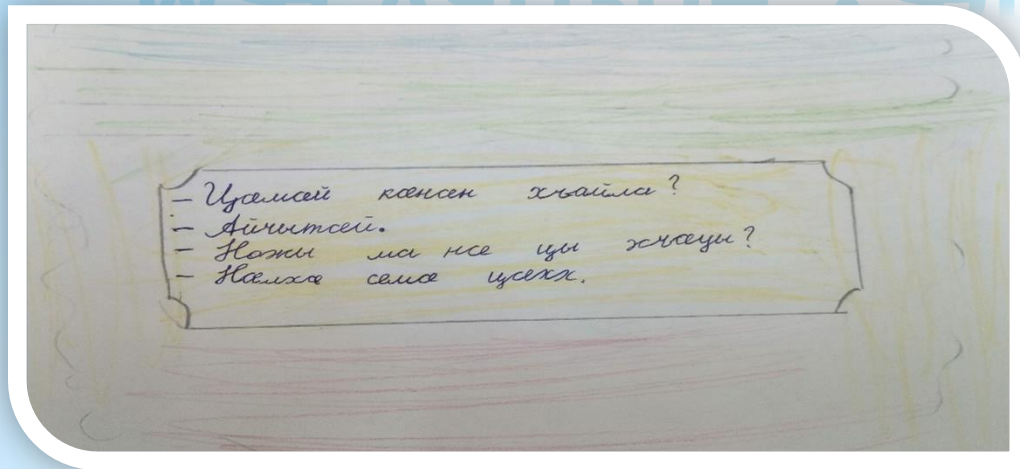 – Цæмæй кæнæн хъайла?
– Айчытæй.
– Ножы ма нæ цы хъæуы?
– Нæлхæ æмæ цæхх.